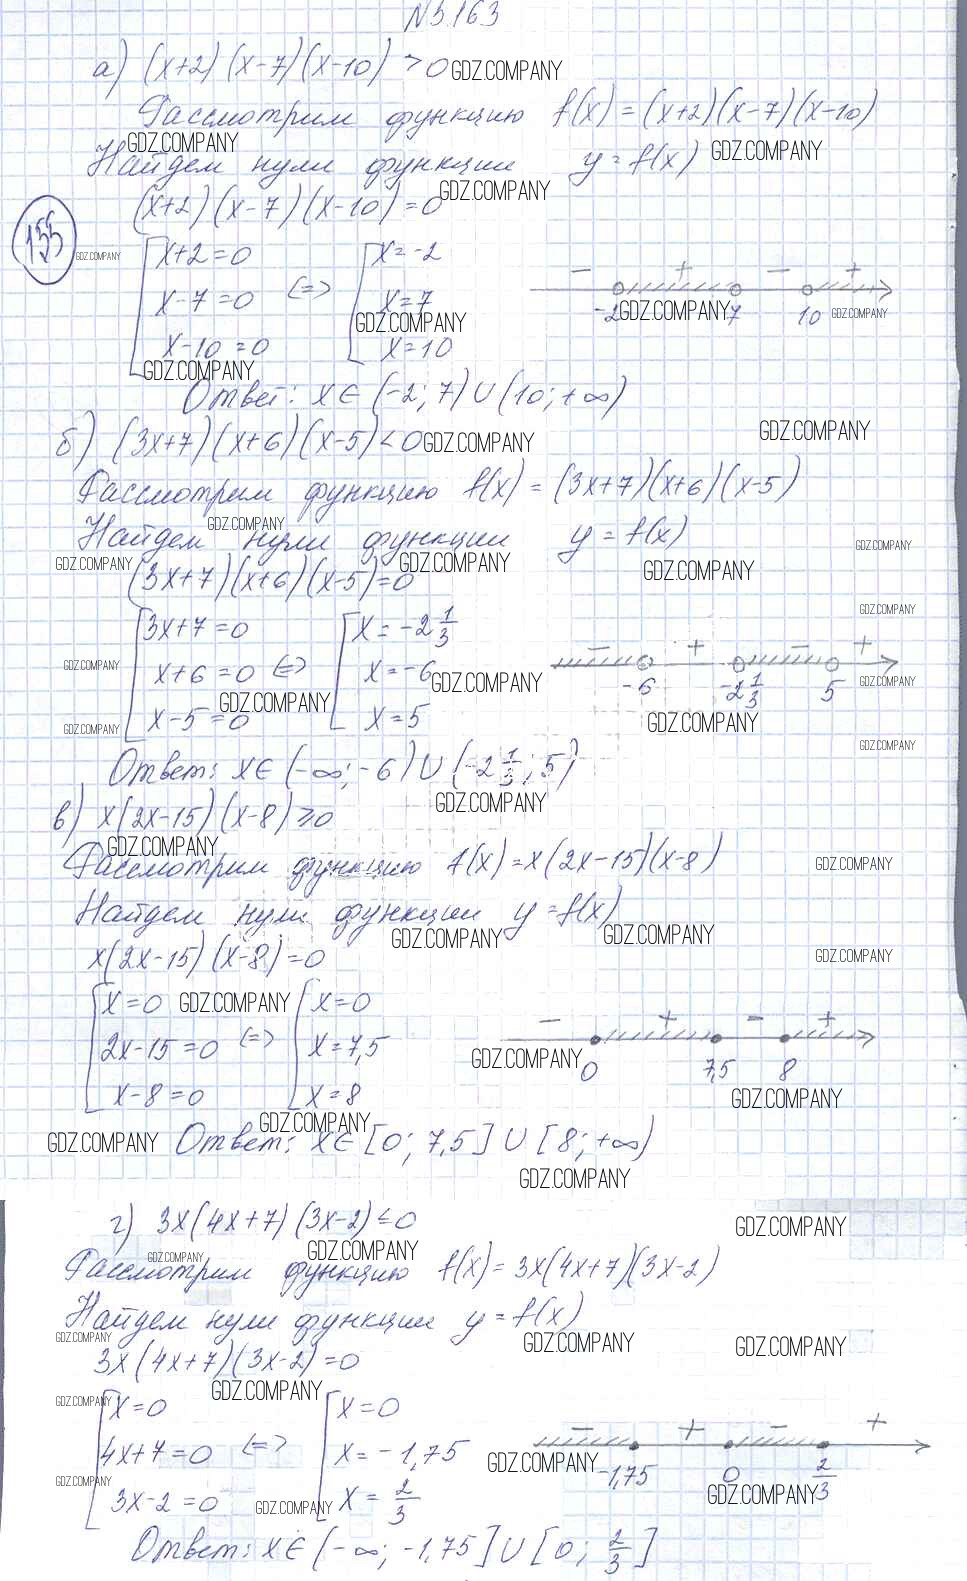 N5.163
а) (x+2)(x-7)(x-10) >0 GDZ.COMPANY
Рассмотрим функцию f(x) = (x+2)(x-7)(x-10)
GDZ.COMPANY
Найдем нули функции y = f(x) GDZ.COMPANY
GDZ.COMPANY
(x+2)(x-7)(x-10)=0
155
GDZ.COMPANY
x+2=0 x=-2
x-7=0 <=> x=7
x-10=0 x=10
- + - +
-2 7 10
GDZ.COMPANY GDZ.COMPANY
GDZ.COMPANY
GDZ.COMPANY
Ответ: x∈(-2; 7)∪(10; +∞)
б) (3x+7)(x+6)(x-5)<0 GDZ.COMPANY GDZ.COMPANY
Рассмотрим функцию f(x) = (3x+7)(x+6)(x-5)
GDZ.COMPANY
Найдем нули функции y = f(x)
GDZ.COMPANY
GDZ.COMPANY GDZ.COMPANY GDZ.COMPANY
(3x+7)(x+6)(x-5)=0
GDZ.COMPANY
3x+7=0 x=-2 1/3
x+6=0 <=> x=-6
x-5=0 x=5
- + - +
-6 -2 1/3 5
GDZ.COMPANY GDZ.COMPANY GDZ.COMPANY
GDZ.COMPANY GDZ.COMPANY GDZ.COMPANY
GDZ.COMPANY
Ответ: x∈(-∞; -6)∪(-2 1/3; 5)
GDZ.COMPANY
в) x(2x-15)(x-8)≥0
GDZ.COMPANY
Рассмотрим функцию f(x)=x(2x-15)(x-8) GDZ.COMPANY
Найдем нули функции y=f(x)
GDZ.COMPANY GDZ.COMPANY
x(2x-15)(x-8)=0 GDZ.COMPANY
x=0 GDZ.COMPANY x=0
2x-15=0 <=> x=7,5
x-8=0 x=8
- + - +
0 7,5 8
GDZ.COMPANY
GDZ.COMPANY
GDZ.COMPANY
GDZ.COMPANY Ответ: x∈[0; 7,5]∪[8; +∞)
GDZ.COMPANY
г) 3x(4x+7)(3x-2)≤0 GDZ.COMPANY
GDZ.COMPANY GDZ.COMPANY
Рассмотрим функцию f(x)=3x(4x+7)(3x-2)
Найдем нули функции y=f(x)
GDZ.COMPANY GDZ.COMPANY GDZ.COMPANY
3x(4x+7)(3x-2)=0
GDZ.COMPANY
GDZ.COMPANY
x=0 x=0
4x+7=0 <=> x=-1,75
3x-2=0 x=2/3
- + - +
-1,75 0 2/3
GDZ.COMPANY
GDZ.COMPANY GDZ.COMPANY
GDZ.COMPANY
Ответ: x∈(-∞; -1,75]∪[0; 2/3]